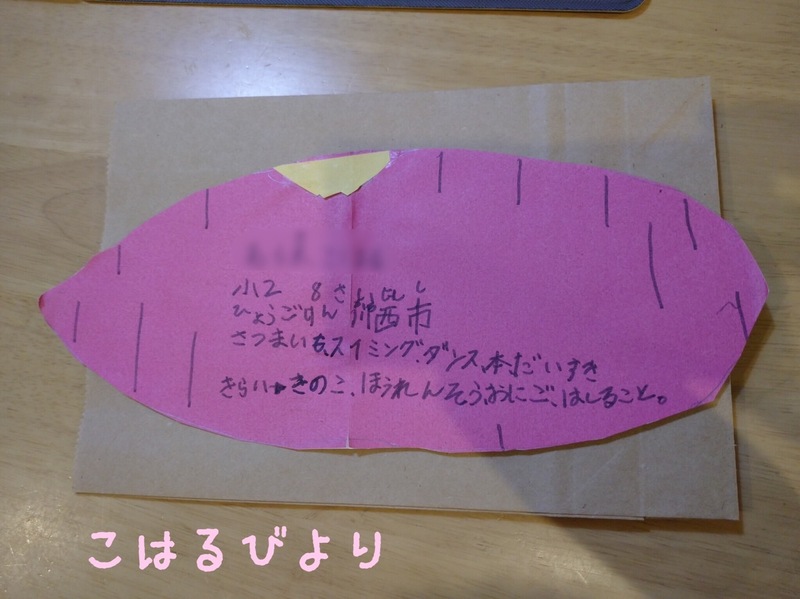 小2 8さい
ひょうごけん 西市
さつまいも、スイミング、ダンス、本、だいすき
きらい→きのこ、ほうれんそう、おにご、はしること。
こはるびより